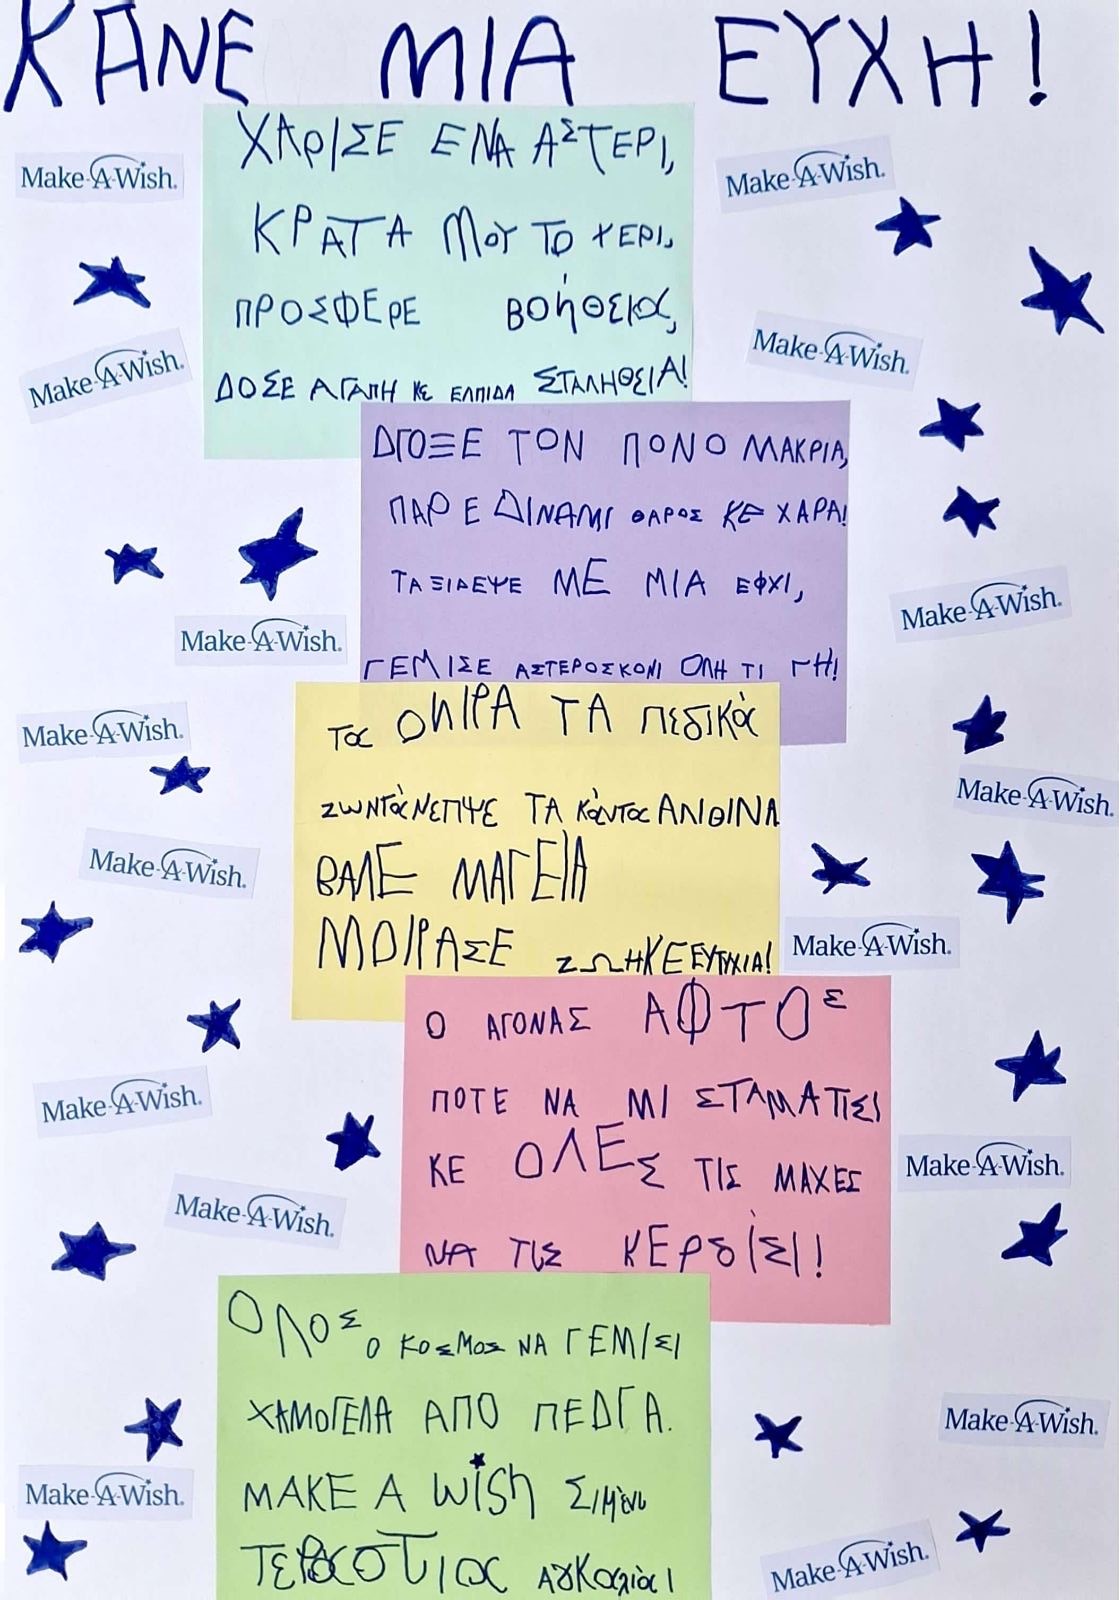 ΚΑΝΕ ΜΙΑ ΕΥΧΗ!
Make-A-Wish.
Make-A-Wish.
ΧΑΡΙΣΕ ΕΝΑ ΑΣΤΕΡΙ,
ΚΡΑΤΑ ΜΟΥ ΤΟ ΧΕΡΙ,
ΠΡΟΣΦΕΡΕ ΒΟήΘΕΙΑ,
ΔΟΣΕ ΑΓΑΠΗ ΚΕ ΕΛΠΙΔΑ ΣΤΑΛΗΘΕΙΑ!
Make-A-Wish.
Make-A-Wish.
ΔΓΟΞΕ ΤΟΝ ΠΟΝΟ ΜΑΚΡΙΑ,
ΠΑΡΕ ΔΙΝΑΜΙ ΘΑΡΟΣ ΚΕ ΧΑΡΑ!
ΤΑΞΙΔΕΨΕ ΜΕ ΜΙΑ ΕΦΧΙ,
ΓΕΜΙΣΕ ΑΣΤΕΡΟΣΚΟΝΙ ΟΛΗ ΤΙ ΓΗ!
Make-A-Wish.
Make-A-Wish.
Τα ΟΝΙΡΑ ΤΑ πεδικά
ΖωντάΝΕΠΨΕ ΤΑ κάντα ΑΛΗΘΙΝΑ
ΒΑΛΕ ΜΑΓΕΙΑ
ΜΟΙΡΑΣΕ ΖΩΗ ΚΕ ΕΥΤΥΧΙΑ!
Make-A-Wish.
Make-A-Wish.
Make-A-Wish.
Make-A-Wish.
Ο ΑΓΟΝΑΣ ΑΦΤΟΣ
ΠΟΤΕ ΝΑ ΜΙ ΣΤΑΜΑΤΙΣΙ
ΚΕ ΟΛΕΣ ΤΙΣ ΜΑΧΕΣ
ΝΑ ΤΙΣ ΚΕΡδίΣΙ!
Make-A-Wish.
Make-A-Wish.
Make-A-Wish.
ΟΛΟΣ Ο ΚΟΣΜΟΣ ΝΑ ΓΕΜΙΣΙ
ΧΑΜΟΓΕΛΑ ΑΠΟ ΠΕΔΓΑ.
MAKE A wish Σιμένι
ΤΕΡαΣΤΙα Αγκαλιά!
Make-A-Wish.
Make-A-Wish.
Make-A-Wish.